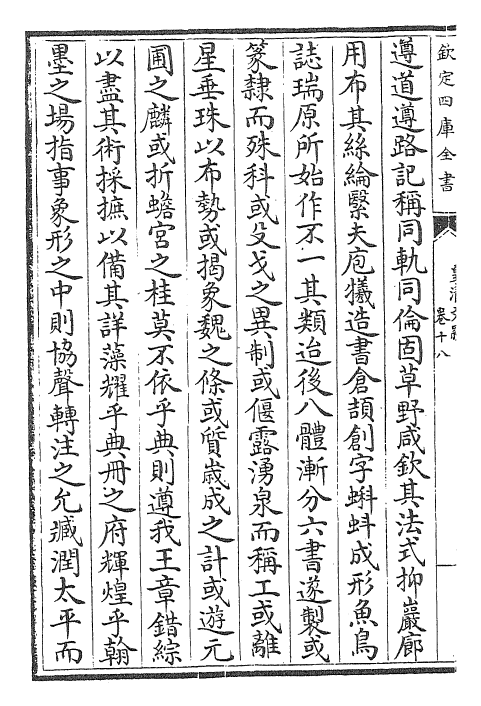 欽定四庫全書
卷十八
遵道遵路記稱同軌同倫固草野咸欽其法式抑巖廊
用布其絲綸繄夫庖犧造書倉頡創字蝌蚪成形魚鳥
誌瑞原所始作不一其類迨後八體漸分六書遂製或
篆隸而殊科或殳戈之異制或偃露湧泉而稱工或離
星垂珠以布勢或揭象魏之條或質歲成之計或遊元
圃之麟或折蟾宮之桂莫不依乎典則遵我王章錯綜
以盡其術採摭以備其詳藻耀乎典冊之府輝煌乎翰
墨之場指事象形之中則協聲轉注之允臧潤太平而